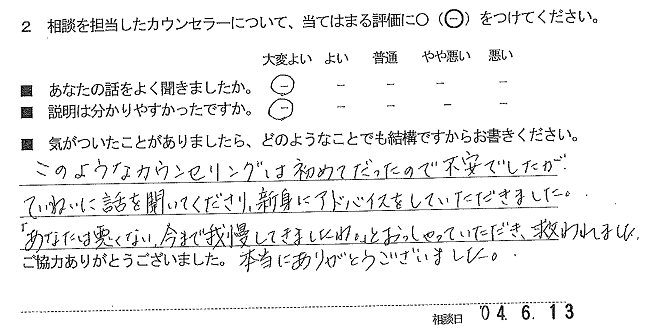 2 相談を担当したカウンセラーについて、当てはまる評価に○(⊖)をつけてください。
大変よい よい 普通 やや悪い 悪い
■ あなたの話をよく聞きましたか。 ⊖ - - - -
■ 説明は分かりやすかったですか。 ⊖ - - - -
■ 気がついたことがありましたら、どのようなことでも結構ですからお書きください。
このようなカウンセリングは初めてだったので不安でしたが
ていねいに話を聞いてくださり、新身にアドバイスをしていただきました。
「あなたは悪くない、今まで我慢してきましたね。」とおっしゃっていただき、救われました。
ご協力ありがとうございました。 本当にありがとうございました。
相談日 '04.6.13